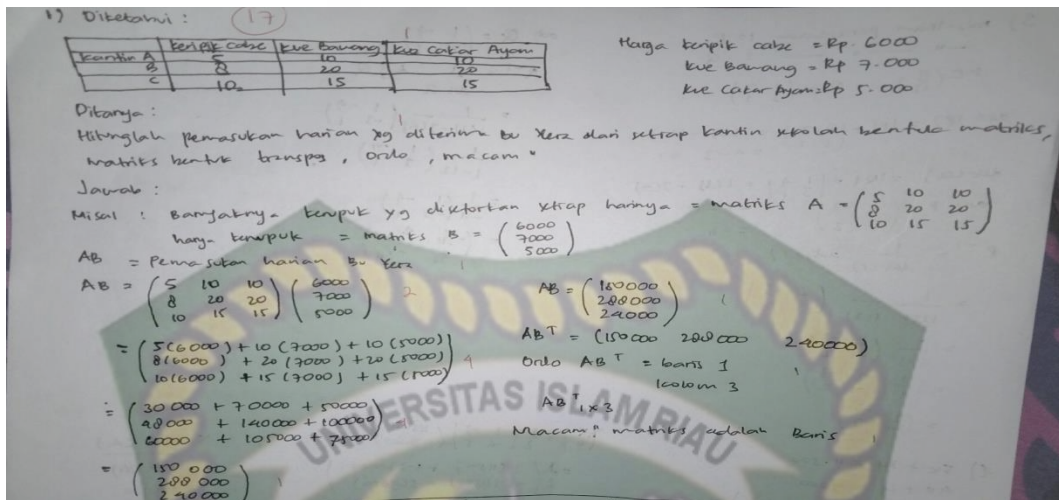 1) Diketahui : 17
keripik cabe kue Bawang kue Cakar Ayam
Kantin A 5 10 10
B 8 20 20
C 10 15 15
Harga keripik cabe = Rp. 6000
kue Bawang = Rp 7.000
kue Cakar Ayam = Rp 5.000
Ditanya :
Hitunglah pemasukan harian yg diterima Bu Yera dari setiap kantin sekolah bentuk matriks,
matriks bentuk transpos, ordo, macam"
Jawab :
Misal : Banyaknya kerupuk yg disetorkan setiap harinya = matriks A = (5 10 10
8 20 20
10 15 15)
harga kerupuk = matriks B = (6000
7000
5000)
AB = Pemasukan harian Bu Yera
AB = (5 10 10 (6000
8 20 20 7000
10 15 15) 5000) 2
= (5(6000) + 10(7000) + 10(5000)
8(6000) + 20(7000) + 20(5000)
10(6000) + 15(7000) + 15(5000)) 4
= (30000 + 70000 + 50000
48000 + 140000 + 100000
60000 + 105000 + 75000)
= (150 000
288 000
240 000)
AB = (150000
288000
24000)
AB^T = (150000 288000 240000)
Ordo AB^T = baris 1
kolom 3
AB^T 1x3
Macam" matriks adalah Baris
UNIVERSITAS ISLAM RIAU